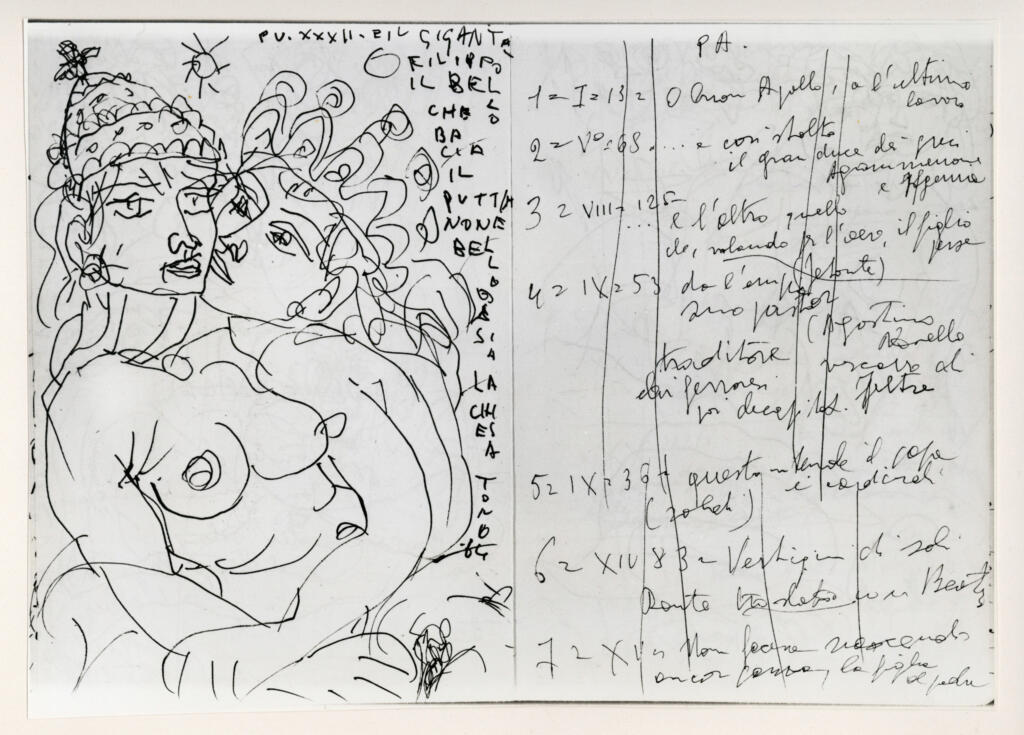 PU. XXXII. E IL GIGANTE
FILIPPO
IL BELLO
CHE
BACIA
IL
PUTTA
NONE
BELLO OSSIA LA CHIESA
TONO
'64
PA.
1 = I = 13 = O buon Apollo, a l'ultimo
lavoro
2 = V° = 68 .... e così stolto
il gran duce de' greci
Agamennone
e Ifigenia
3 = VIII = 125
... è l'altro quello
che, volando per l'aere, il figlio
perse
4 = IX = 53 da l'empio
suo pastor
(Agostino
Novello
traditore vescovo di
dei ferraresi Feltre
poi decapitato.
5 = IX = 38 + questo intende il papa
e i cardinali
(soldi)
6 = XIV 83 = Vertigini di soli
Dante traslato con Beatr
7 = XV = Non faceva nascendo
ancor paura, la figlia
al padre